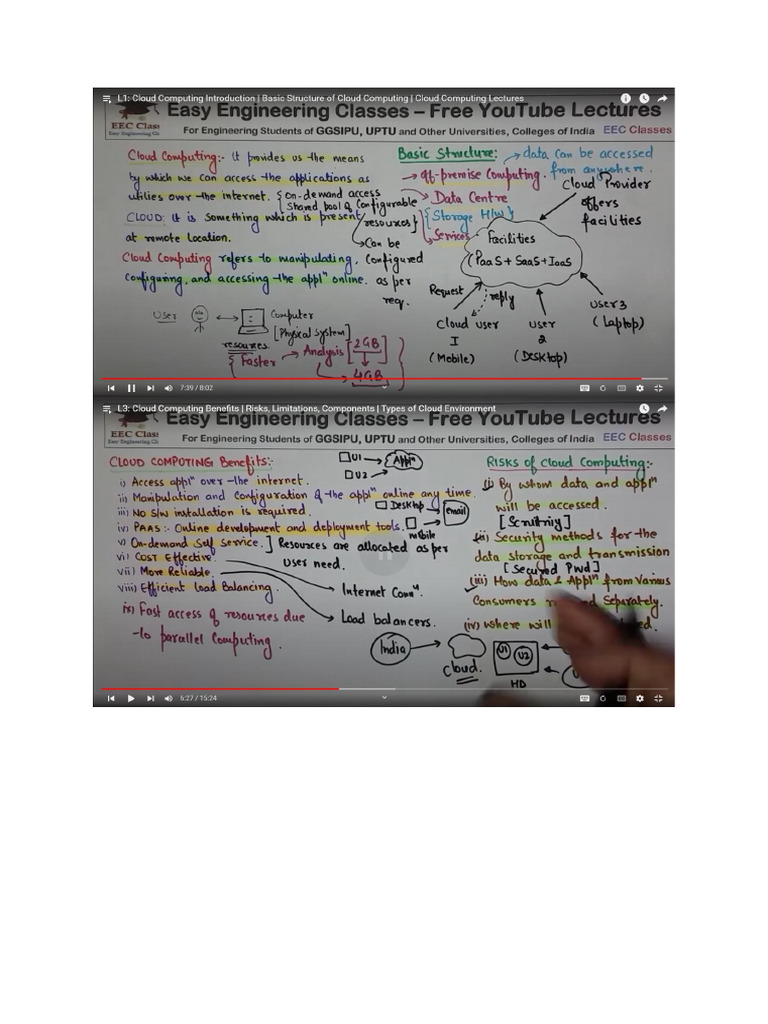 L1: Cloud Computing Introduction | Basic Structure of Cloud Computing | Cloud Computing Lectures
Easy Engineering Classes – Free YouTube Lectures
EEC Classes
Easy Engineering Cl
For Engineering Students of GGSIPU, UPTU and Other Universities, Colleges of India EEC Classes
Cloud Computing:- It provides us the means
by which we can access the applications as
utilies over the internet. {On-demand access
Shared pool of Configurable
resources}
CLOUD: It is something which is present
at remote location.
Can be
configured
as per
req.
Cloud Computing refers to manipulating,
configuring, and accessing the applⁿ online.
User
Computer
[Physical system]
resources
{Faster → Analysis [2GB]
4GB
Basic Structure:
→ data can be accessed
from anywhere.
→ off-premise Computing.
→ Data Centre
{Storage H/w}
Services
Cloud Provider
offers
facilities
Facilities
(PaaS + SaaS + IaaS
Request
reply
Cloud user
I
(Mobile)
user
2
(Desktop)
user 3
(Laptop)
7:39 / 8:02
L3: Cloud Computing Benefits | Risks, Limitations, Components | Types of Cloud Environment
Easy Engineering Classes – Free YouTube Lectures
EEC Class
Easy Engineering Cl
For Engineering Students of GGSIPU, UPTU and Other Universities, Colleges of India EEC Classes
CLOUD COMPUTING Benefits:-
i) Access applⁿ over the internet.
ii) Manipulation and Configuration of the applⁿ online any time.
iii) No S/w installation is required.
iv) PAAS :- Online development and deployment tools.
v) On-demand Self Service.] Resources are allocated as per
user need.
vi) Cost Effective.
vii) More Reliable
viii) Efficient Load Balancing.
ix) Fast access of resources due
to parallel Computing.
U1
U2
Applⁿ
Desktop
email
mobile
Internet Connⁿ.
Load balancers.
RISKS of Cloud Computing:-
(i) By whom data and applⁿ
will be accessed.
[Scrutniy]
(ii) Security methods for the
data storage and transmission
[Secured Pwd]
(iii) How data & Applⁿ from various
Consumers Separately.
(iv) where will
India
Cloud.
U1
U2
HD
6:27 / 15:24